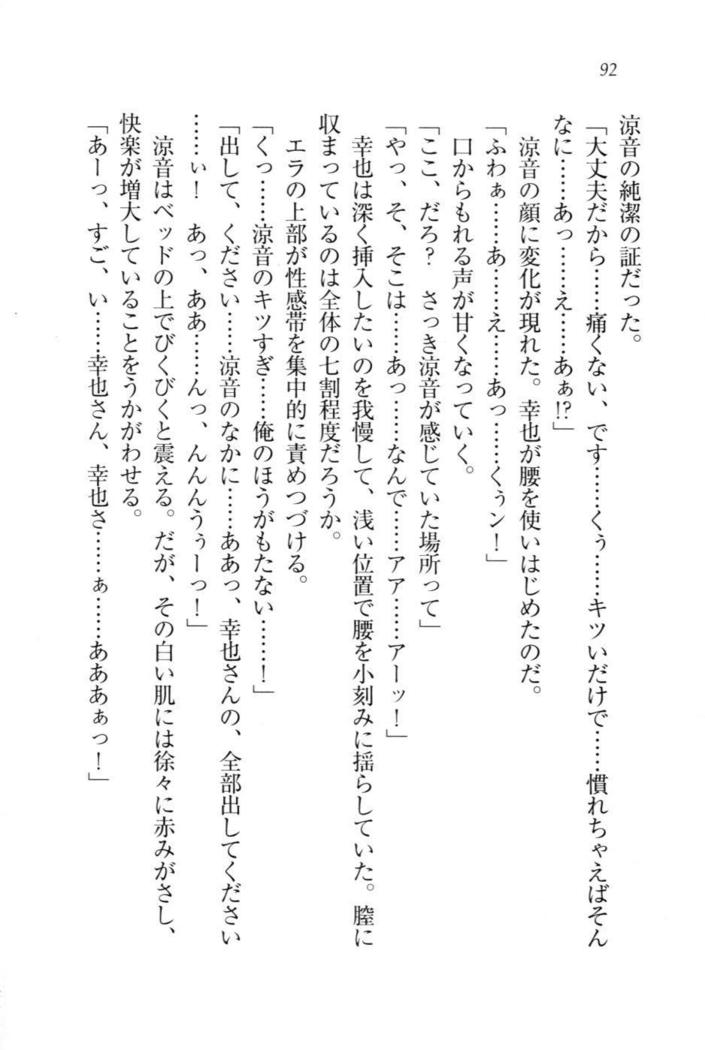 92
涼音の純潔の証だった。
「大丈夫だから……痛くない、です……くぅ……キツいだけで……慣れちゃえばそん
なに……あっ……え……あぁ!?」
涼音の顔に変化が現れた。幸也が腰を使いはじめたのだ。
「ふわぁ……あ……え……あっ……くぅン！」
口からもれる声が甘くなっていく。
「ここ、だろ？　さっき涼音が感じていた場所って」
「やっ、そ、そこは……あっ……なんで……アア……アーッ！」
幸也は深く挿入したいのを我慢して、浅い位置で腰を小刻みに揺らしていた。膣に
収まっているのは全体の七割程度だろうか。
エラの上部が性感帯を集中的に責めつづける。
「くっ……涼音のキツすぎ……俺のほうがもたない……！」
「出して、ください……涼音のなかに……ああっ、幸也さんの、全部出してください
……ぃ！　あっ、ああ……んっ、んんんうぅーっ！」
涼音はベッドの上でびくびくと震える。だが、その白い肌には徐々に赤みがさし、
快楽が増大していることをうかがわせる。
「あーっ、すご、い……幸也さん、幸也さ……ぁ……あああぁっ！」